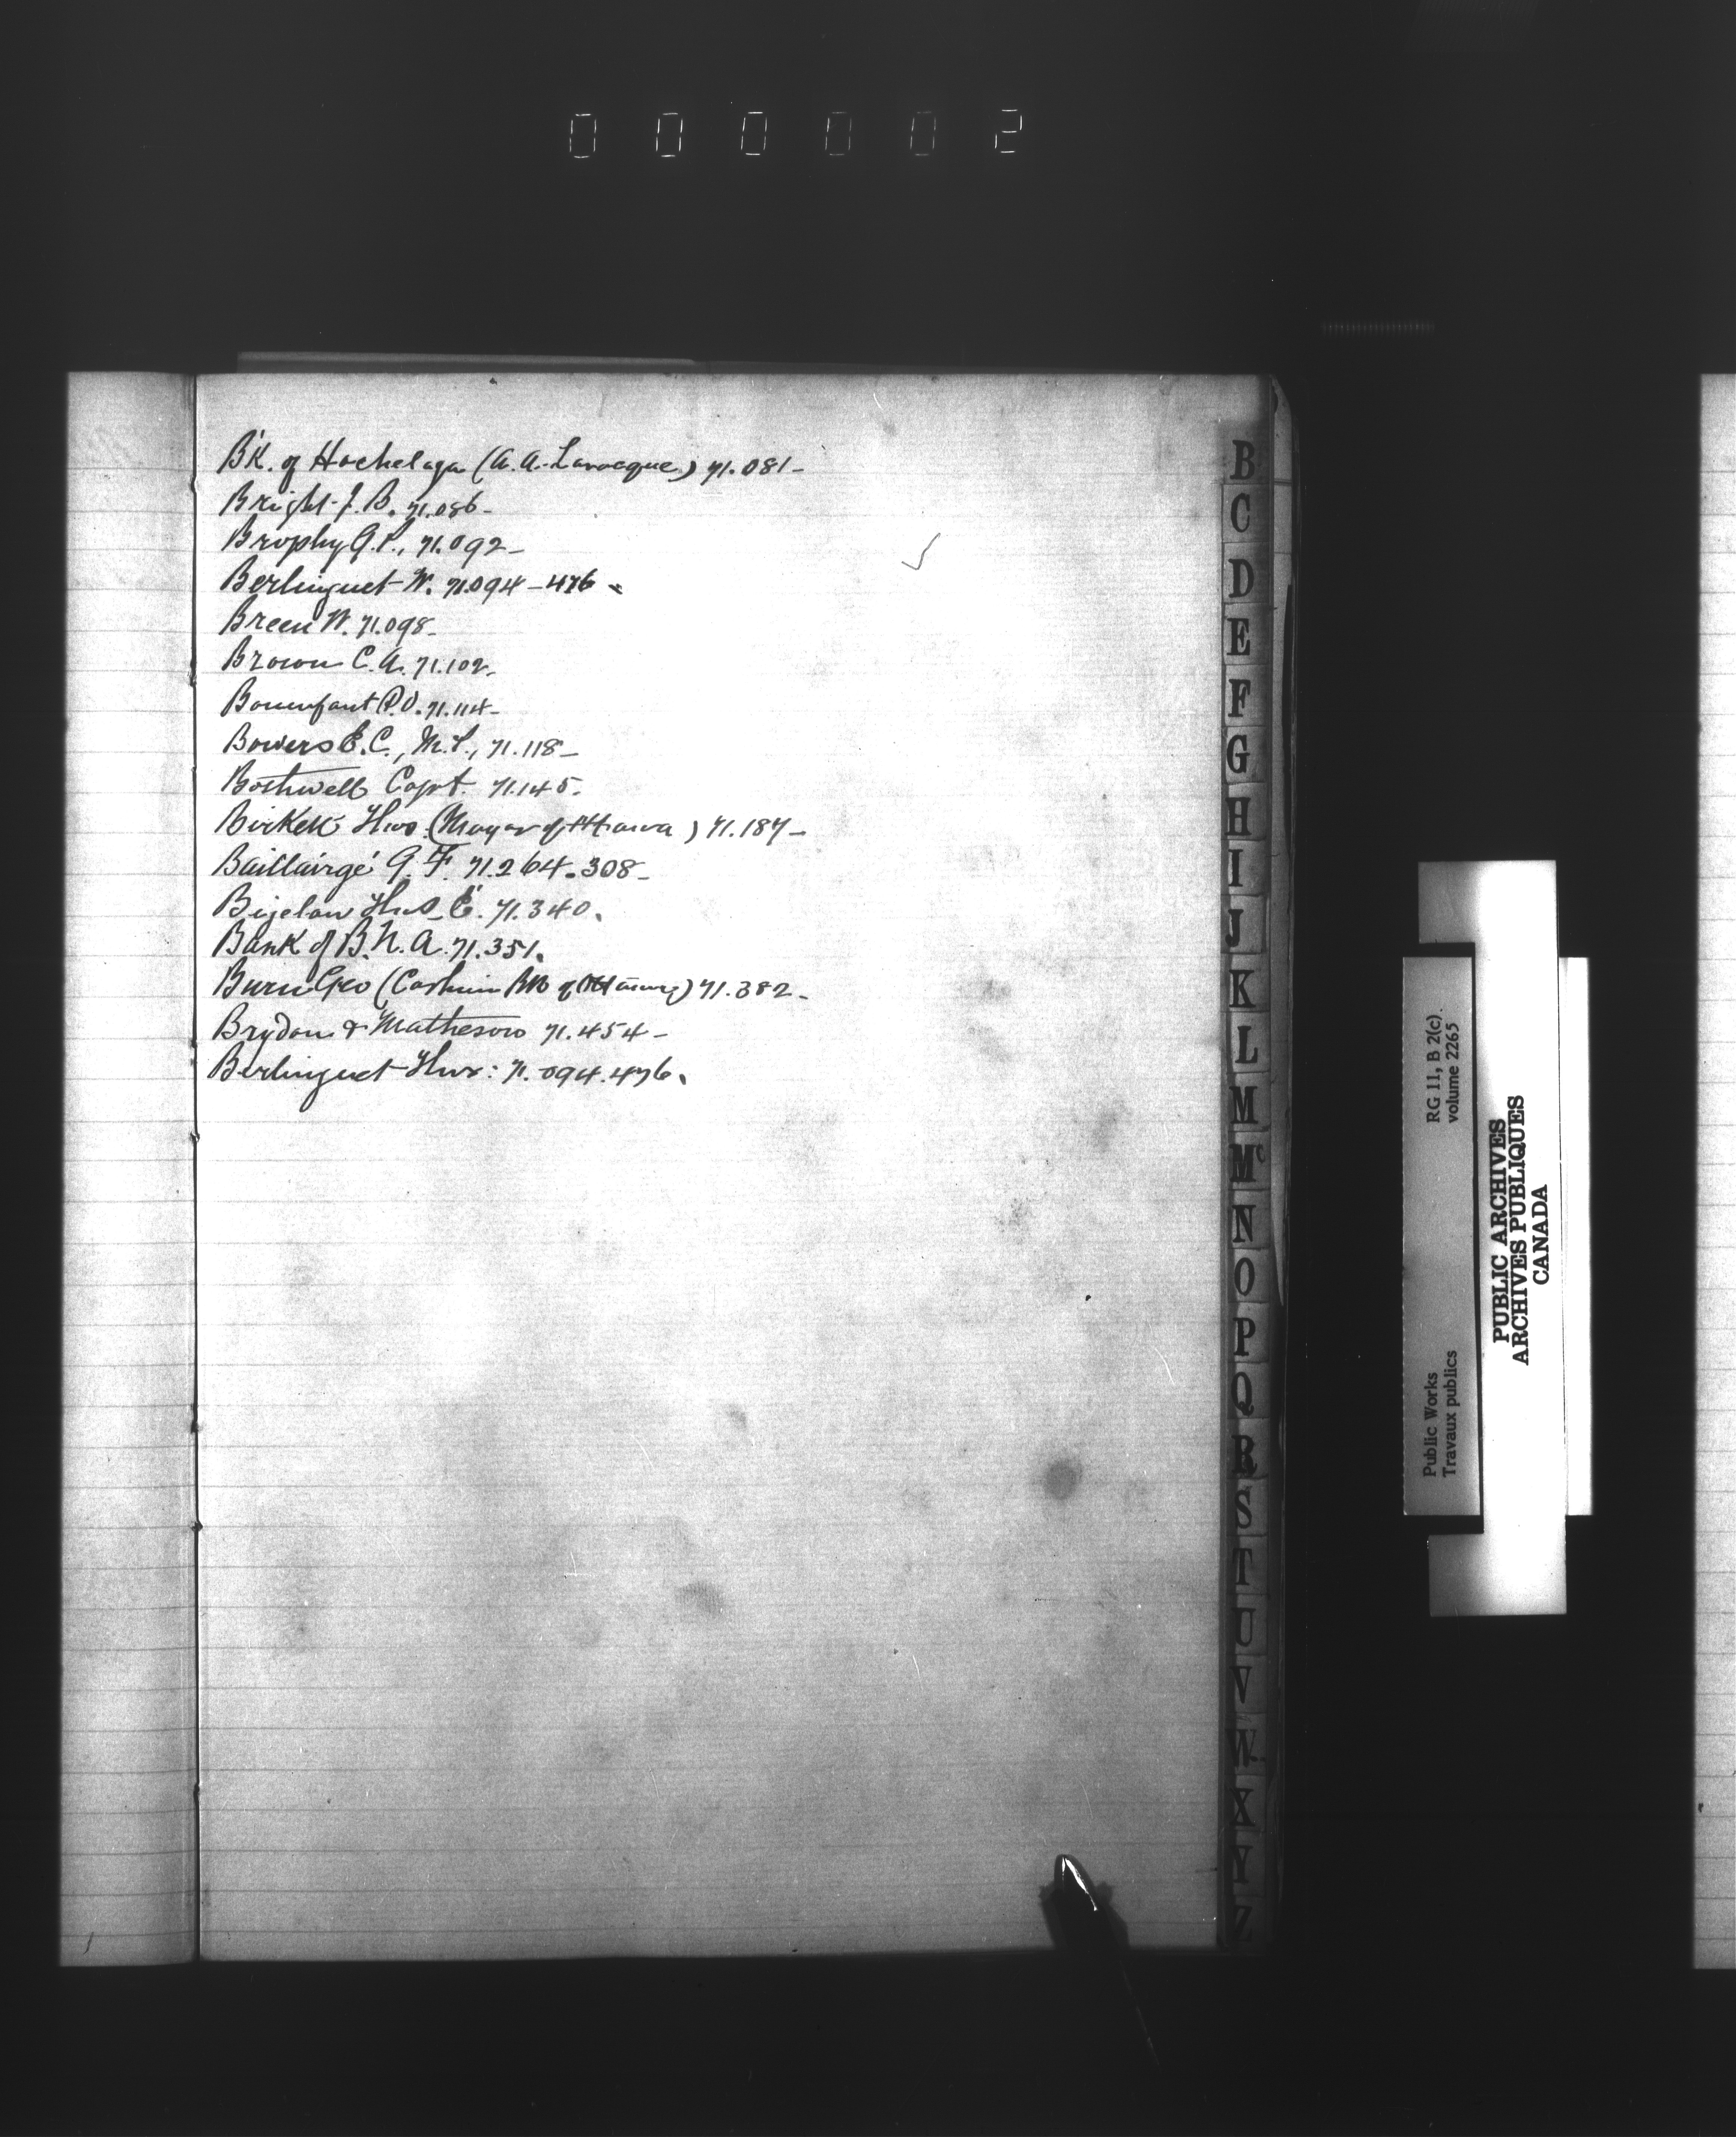 000002
B'k. of Hochelaga (A. A. Larocque) 71.081-
Bright J. B. 71.086-
Brophy G. P., 71.092-
Berlinguet W. 71.094-476.
Breen W. 71.098-
Brown C. A. 71.102-
Bonenfant P. O. 71.114-
Bowers E. C., M. P., 71.118-
Bothwell Capt. 71.145.
Birkett Thos. (Mayor of Ottawa) 71.187-
Baillairgé G. F. 71.264.308-
Bigelow Thos. E. 71.340.
Bank of B. N. A. 71.351.
Burn Geo (Cashier Bk of Ottawa) 71.382-
Brydon & Matheson 71.454-
Berlinguet Thos: 71.094.476.
B
C
D
E
F
G
H
I
J
K
L
M
Mc
N
O
P
Q
R
S
T
U
V
W
X
Y
Z
Public Works
Travaux publics
RG 11, B 2(c).
volume 2265
PUBLIC ARCHIVES
ARCHIVES PUBLIQUES
CANADA